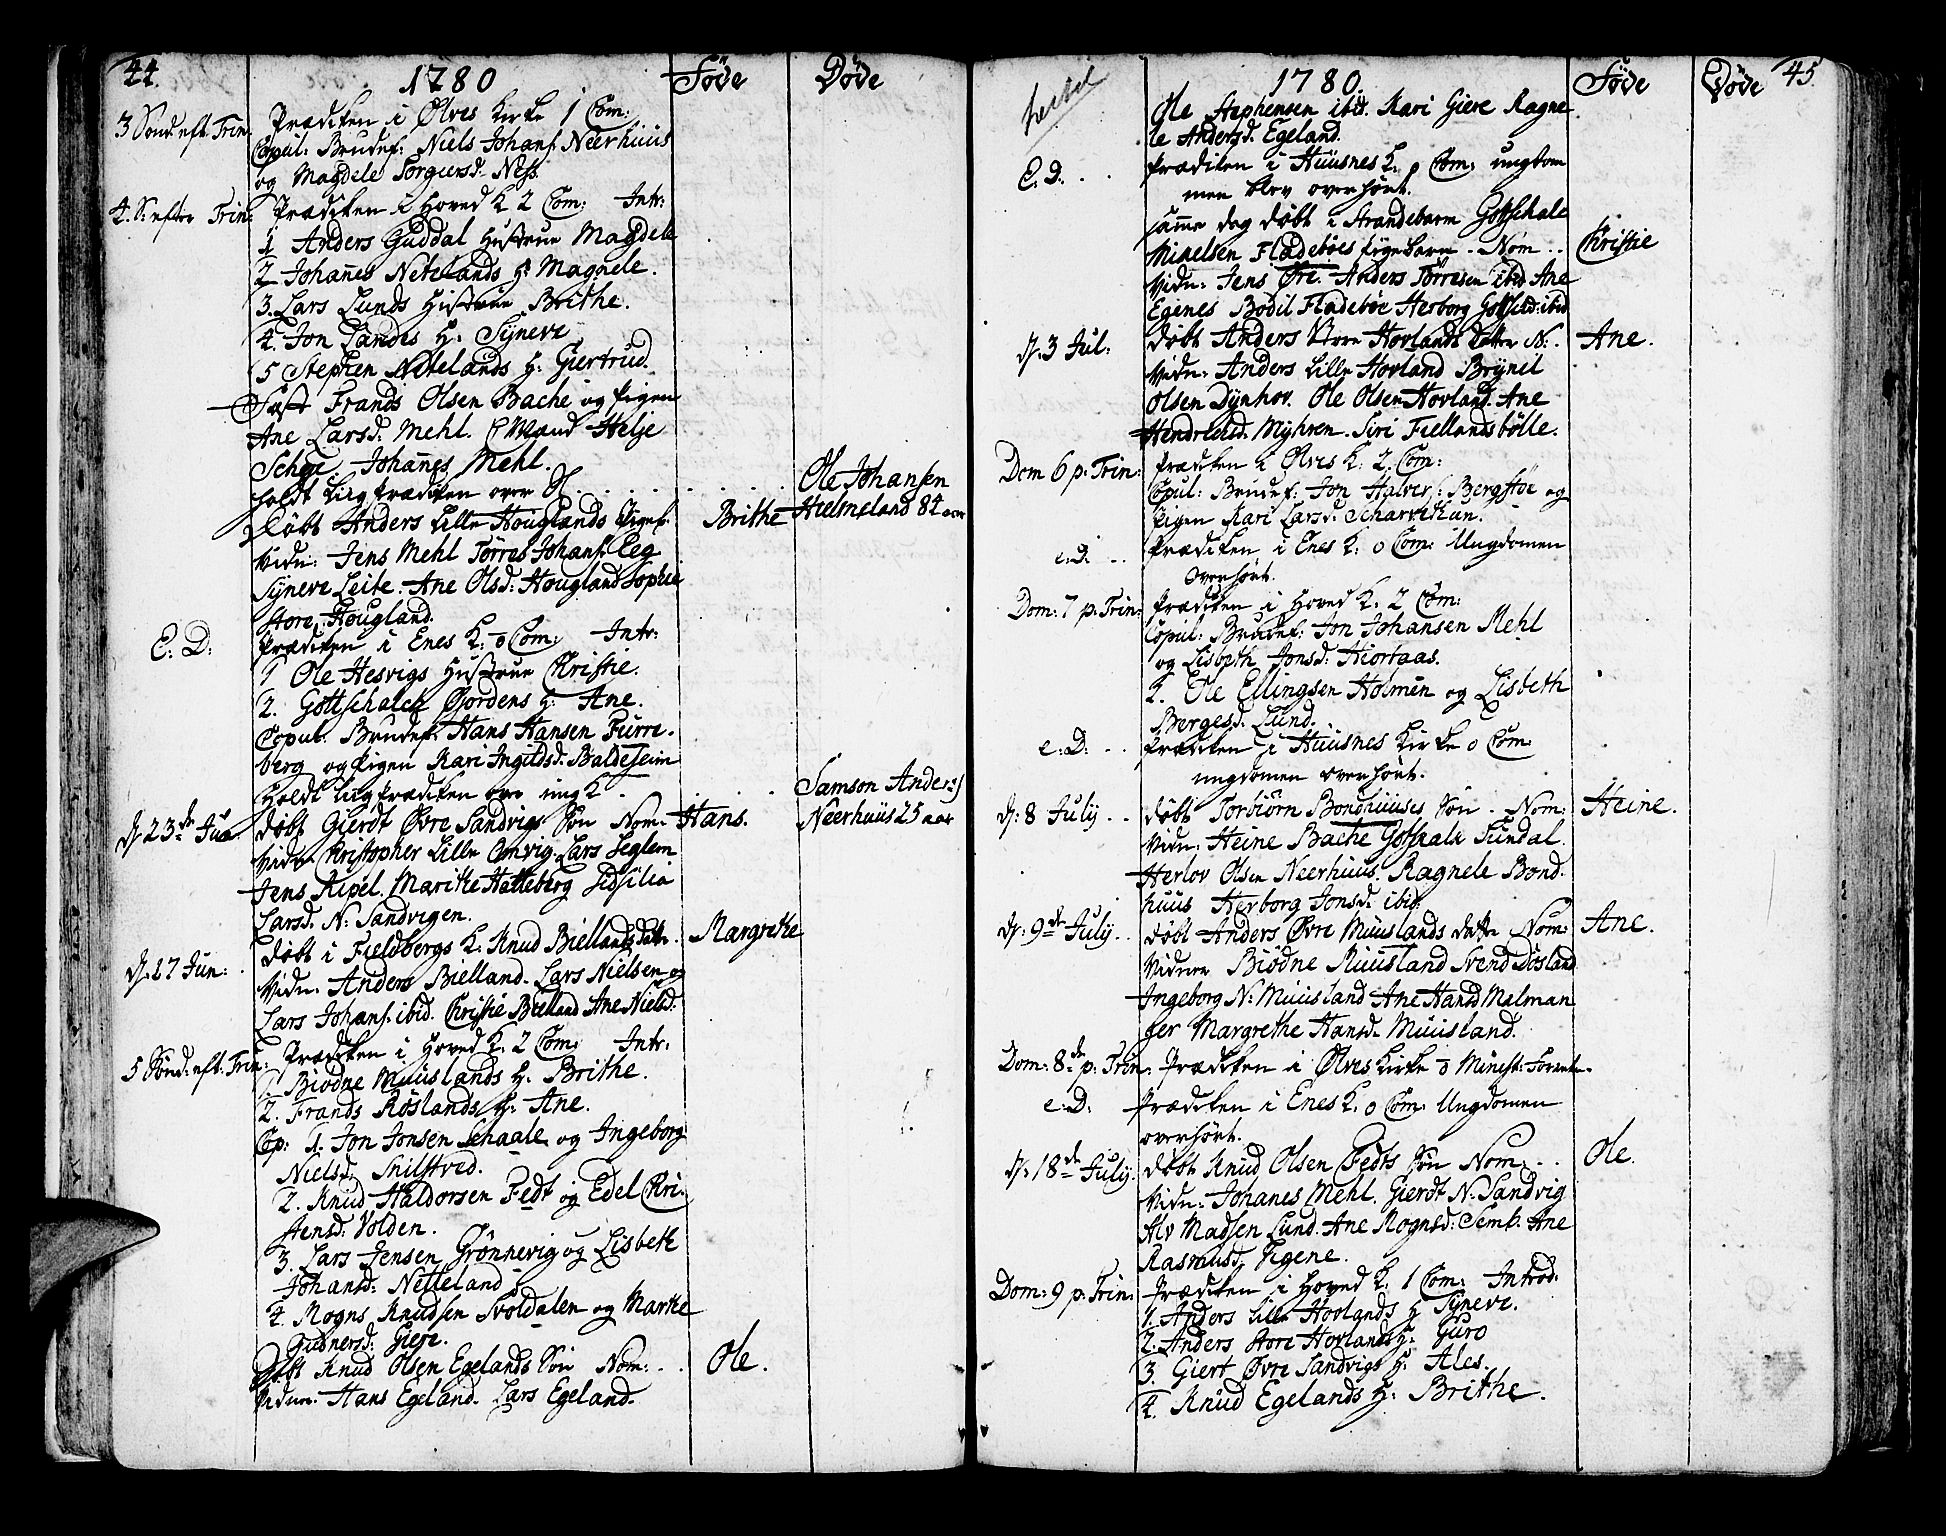 44.
1780
Føde
Døde
3 Sønd: eft. Trin.
Prædiken i Ølves Kirke 1 Com:
Copul: Brudef: Niels Johans. Neerhuus
og Magdele Torgiersd. Ness.
4. S: efter Trin:
Prædiken i Hoved K 2 Com: Intr:
1 Anders Guddal Hustrue Magdele
2 Johanes Netelands H: Magnele.
3. Lars Lunds Hustrue Brithe.
4. Jon Sandes H: Syneve
5 Stephen Netelands H: Giertrud.
Fæst Frands Olsen Bache og Pigen
Ane Larsd. Mehl. C Mænd Helje
Johanes Mehl.
holdt Liigprædiken over
Ole Johansen
Hielmeland 84 aar
Døbt Anders Lille Houglands Pigeb.
Brithe
Vidn: Jens Mehl Tørres Johans. Eeg
Syneve Leite. Ane Olsd. Hougland Sophie
store Hougland.
E: D:
Prædiken i Enes K: 0 Com: Intr:
1 Ole Hesvigs Hustrue Christie.
2. Gottschalck Gjordens H: Ane.
Copul: Brudef: Hans Hansen Furre-
berg og Pigen Kari Ingildsd. Baldesheim
Holdt Liigprædiken over ung K
Samson Anders:
Neerhuus 25 aar
D. 23de Jun.
Døbt Gierdt Øvre Sandvigs Søn Nom:
Hans.
Vidn Christopher Lille Omvig. Lars Seglem
Jens Ripel. Marithe Hatteberg Sidsilia
Larsd. N: Sandvigen.
D. 27 Jun:
Døbt i Fieldbergs K: Knud Biellands Datt.
Margrethe
Vidn: Anders Bielland. Lars Nielsen og
Lars Johans. ibid. Christie Bielland Ane Nielsd.
5 Sønd: eft. Trin:
Prædiken i Hoved K: 2 Com: Intr:
1 Biødne Muuslands H: Brithe.
2. Frands Røslands H: Ane.
Cop: 1. Jon Jonsen Schaale og Ingeborg
Nielsd. Snilstved.
2. Knud Haldorsen Fedt og Edel Chri-
stensd. Volden.
3. Lars Jensen Grønnevig og Lisbeth
Johansd: Netteland
4 Mogns Knudsen Svoldalen og Marthe
Gunnersd: Giere.
Døbt Knud Olsen Egelands Søn Nom:
Ole.
Vidn: Hans Egeland. Lars Egeland.
1780.
Føde
Døde
45.
Ole Stephensen ibid. Kari Giere Ragne
le Andersd. Egeland.
E. D.
Prædiken i Huusnes K. 0 Com: ungdom
men blev overhørt.
samme dag døbt i Strandebarm Gottschalc
Mikelsen Fladebøes Pigebarn. Nom
Christie
Vidn: Jens Øre. Anders Tørresen ibid Ane
Egenes Bodil Fladebøe Herborg Gottsd: ibid
D: 3 Jul:
Døbt Anders Store Hovlands Datter N:
Ane.
Vidn: Anders Lille Hovland Brynil
Olsen Dynhov. Ole Olsen Hovland. Ane
Hendrichsd. Myhren. Siri Fiellandsbølle.
Dom 6 p: Trin:
Prædiken i Ølves K: 2. Com:
Copul: Brudef: Jon Halvers: Bergstøe og
Pigen Kari Larsd. Scharvethun.
e: D:
Prædiken i Enes K: 0 Com: Ungdomen
Overhørt.
Dom: 7 p: Trin:
Prædiken i Hoved K: 2 Com:
Copul: Brudef: Jon Johansen Mehl
og Lisbeth Jonsd: Hiortaas.
2. Ole Ellingsen Holmen og Lisbeth
Bergesd. Lund.
e: D:
Prædiken i Huusnes Kirke 0 Com:
ungdomen overhørt.
D: 8 July
Døbt Torbiørn Bondhuuses Søn. Nom:
Heine.
Vidn: Heine Bache Gotskalk Sundal.
Herlov Olsen Neerhuus. Ragnele Bond-
huus Herborg Jonsd. ibid.
D: 9de July
Døbt Anders Øvre Muuslands Datter Nom:
Ane.
Vidne Biødne Muusland Svend Døsland
Ingeborg N: Muusland Ane Hansd Malman
ger Margrethe Hansd. Muusland.
Dom: 8de p: Trin.
Prædiken i Ølves Kirke
e: D:
Prædiken i Enes K: 0 Com: Ungdomen
overhørt.
D. 18de July.
Døbt Knud Olsen Fedts Søn Nom:
Ole.
Vidn: Johanes Mehl. Gierdt N: Sandvig
Alv Madsen Lund. Ane Mognsd: Semb. Ane
Rasmusd. Tigene.
Dom: 9 p: Trin:
Prædiken i Hoved K: 1 Com: Introd:
1. Anders Lille Hovlands H Syneve.
2. Anders Store Hovlands H: Guro
3. Giert Øvre Sandvigs H: Ales.
4. Knud Egelands H: Brithe.